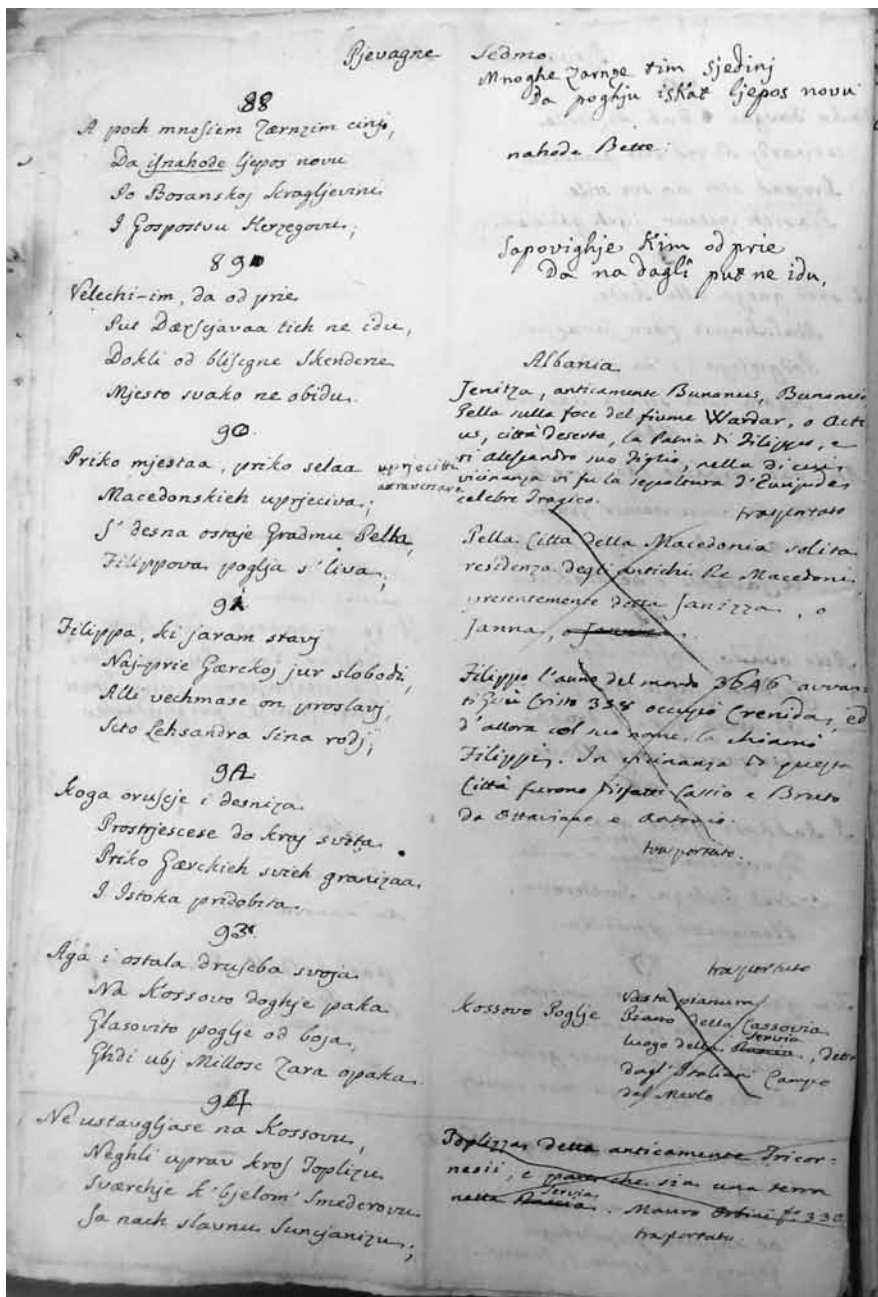 Pjevagne Sedmo.
88
A poch mnosiem Zærnzim cinj,
Da isnahode ljepos novu
Po Bosanskoj Kragljevini
I Gospostvu Herzegovu;
89
Velechi-im, da od prie
Put Dærscjavaa tieh ne idu,
Dokli od bliscgne Skenderie
Mjesto svako ne obidu.
90.
Priko mjestaa, priko selaa
Macedonskieh uprjeciva;
S' desna ostaje Gradmu Pella,
Filippova poglja s' liva.
91
Filippa, ki jaram stavj
Naj-prie Gærckoj jur slobodi,
Alli vechmase on proslavj,
Scto Lehsandra sina rodj;
92
Koga oruscje i desniza
Prostrjescese do kraj svita
Priko Gærckieh svieh granizaa,
I Istoka pridobita.
93.
Agà i ostala druscba svoja
Na Kossovo doghje paka
Glasovito poglje od boja,
Ghdi ubj Millosc Zara opaka.
94
Ne ustavgljase na Kossovu,
Neghli uprav kroj Toplizu
Sværchje k' bjelom' Smederovu
Sa nach slavnu Suncjanizu;
Mnoghe zarnze tim sjedinj
Da poghju iskat ljepos novu
nahode Bette:
Sapovighje kim od prie
Da na dagli put ne idu,
Albania
Jenitza, anticamente Bunonus, Bunomus
Pella sulla foce del fiume Wardar, o Acti
us, città deserta, la Patria di Filippo, e
di Alessandro suo figlio, nella di cui
vicinanza vi fu la sepoltura d'Euripide
celebre Tragico.
uprjecitti
attraversare
trasportato
Pella Città della Macedonia solita
residenza degli antichi Re Macedoni
presentemente detta Janizza, o
Janna,
Filippo l'anno del mondo 3646 avvan
ti Gesù Cristo 358 occupò Crenidas, ed
d'allora col suo nome la chiamò
Filippi. In vicinanza di questa
Città furono disfatti Cassio e Bruto
da Ottaviano e Antonio.
trasportato.
trasportato
Kossovo Poglje
Vasta pianura
Piano della Cassovia
luogo della Servia, detto
dagl'Italiani Campo
del Merlo
Toplizza detta anticamente Tricor-
nesii, e pare che sia una terra
nella Servia. Mauro Orbini f. 330
trasportato